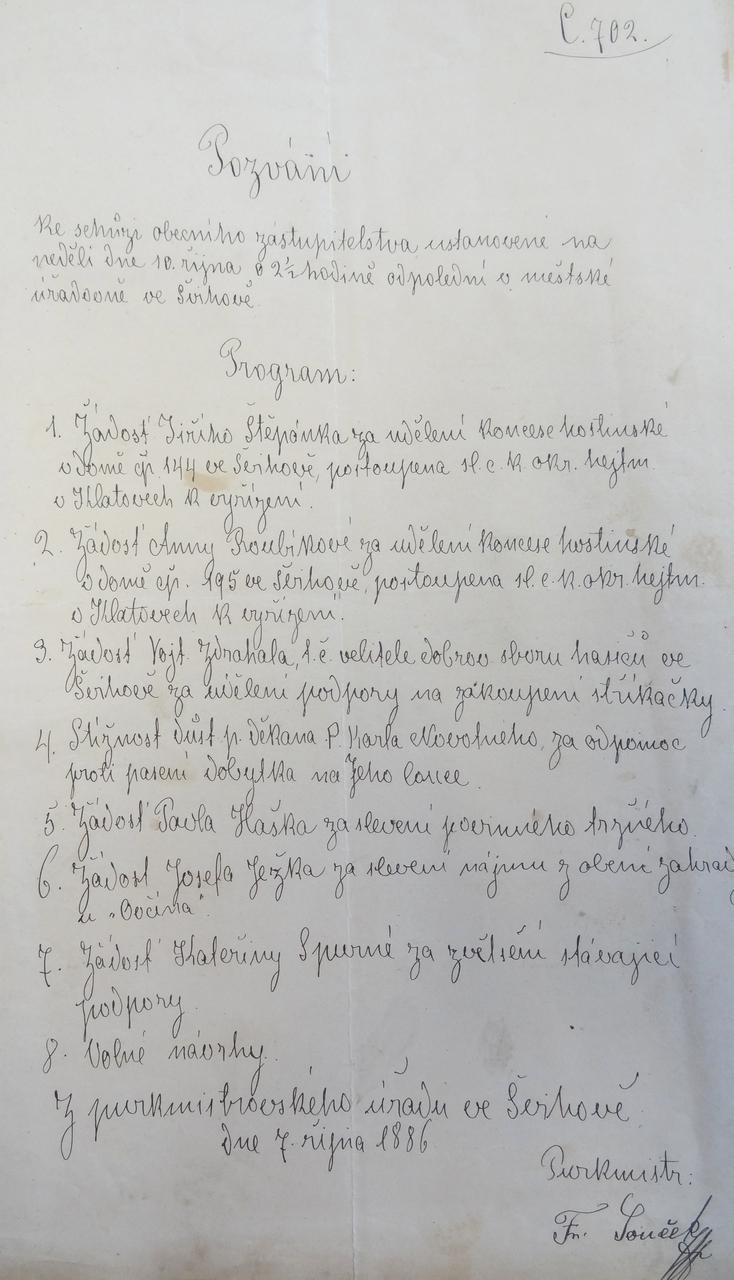 Č. 702.
Pozvání
ke schůzi obecního zastupitelstva ustanovené na
neděli dne 10. října o 2½ hodině odpolední v městské
úřadovně ve Švihově.
Program:
1. Žádosť Jiřího Štěpánka za udělení koncese hostinské
v domě čp. 144 ve Švihově, postoupena sl. c. k. okr. hejtm.
v Klatovech k vyřízení.
2. Žádosť Anny Roubíkové za udělení koncese hostinské
v domě čp. 195 ve Švihově, postoupena sl. c. k. okr. hejtm.
v Klatovech k vyřízení.
3. Žádosť Vojt. Zdrahala, t. č. velitele dobrov. sboru hasičů ve
Švihově za udělení podpory na zakoupení stříkačky.
4. Stížnost důst. p. děkana P. Karla Novotného, za odpomoc
proti pasení dobytka na Jeho louce.
5. Žádosť Pavla Haška za slevení povinného tržného.
6. Žádosť Josefa Ježka za slevení nájmu z obcní zahrady
u „Ovčína".
7. Žádosť Kateřiny Spurné za zvětšení stávající
podpory.
8. Volné návrhy.
Z purkmistrovského úřadu ve Švihově
dne 7. října 1886
Purkmistr:
Fr. Souček